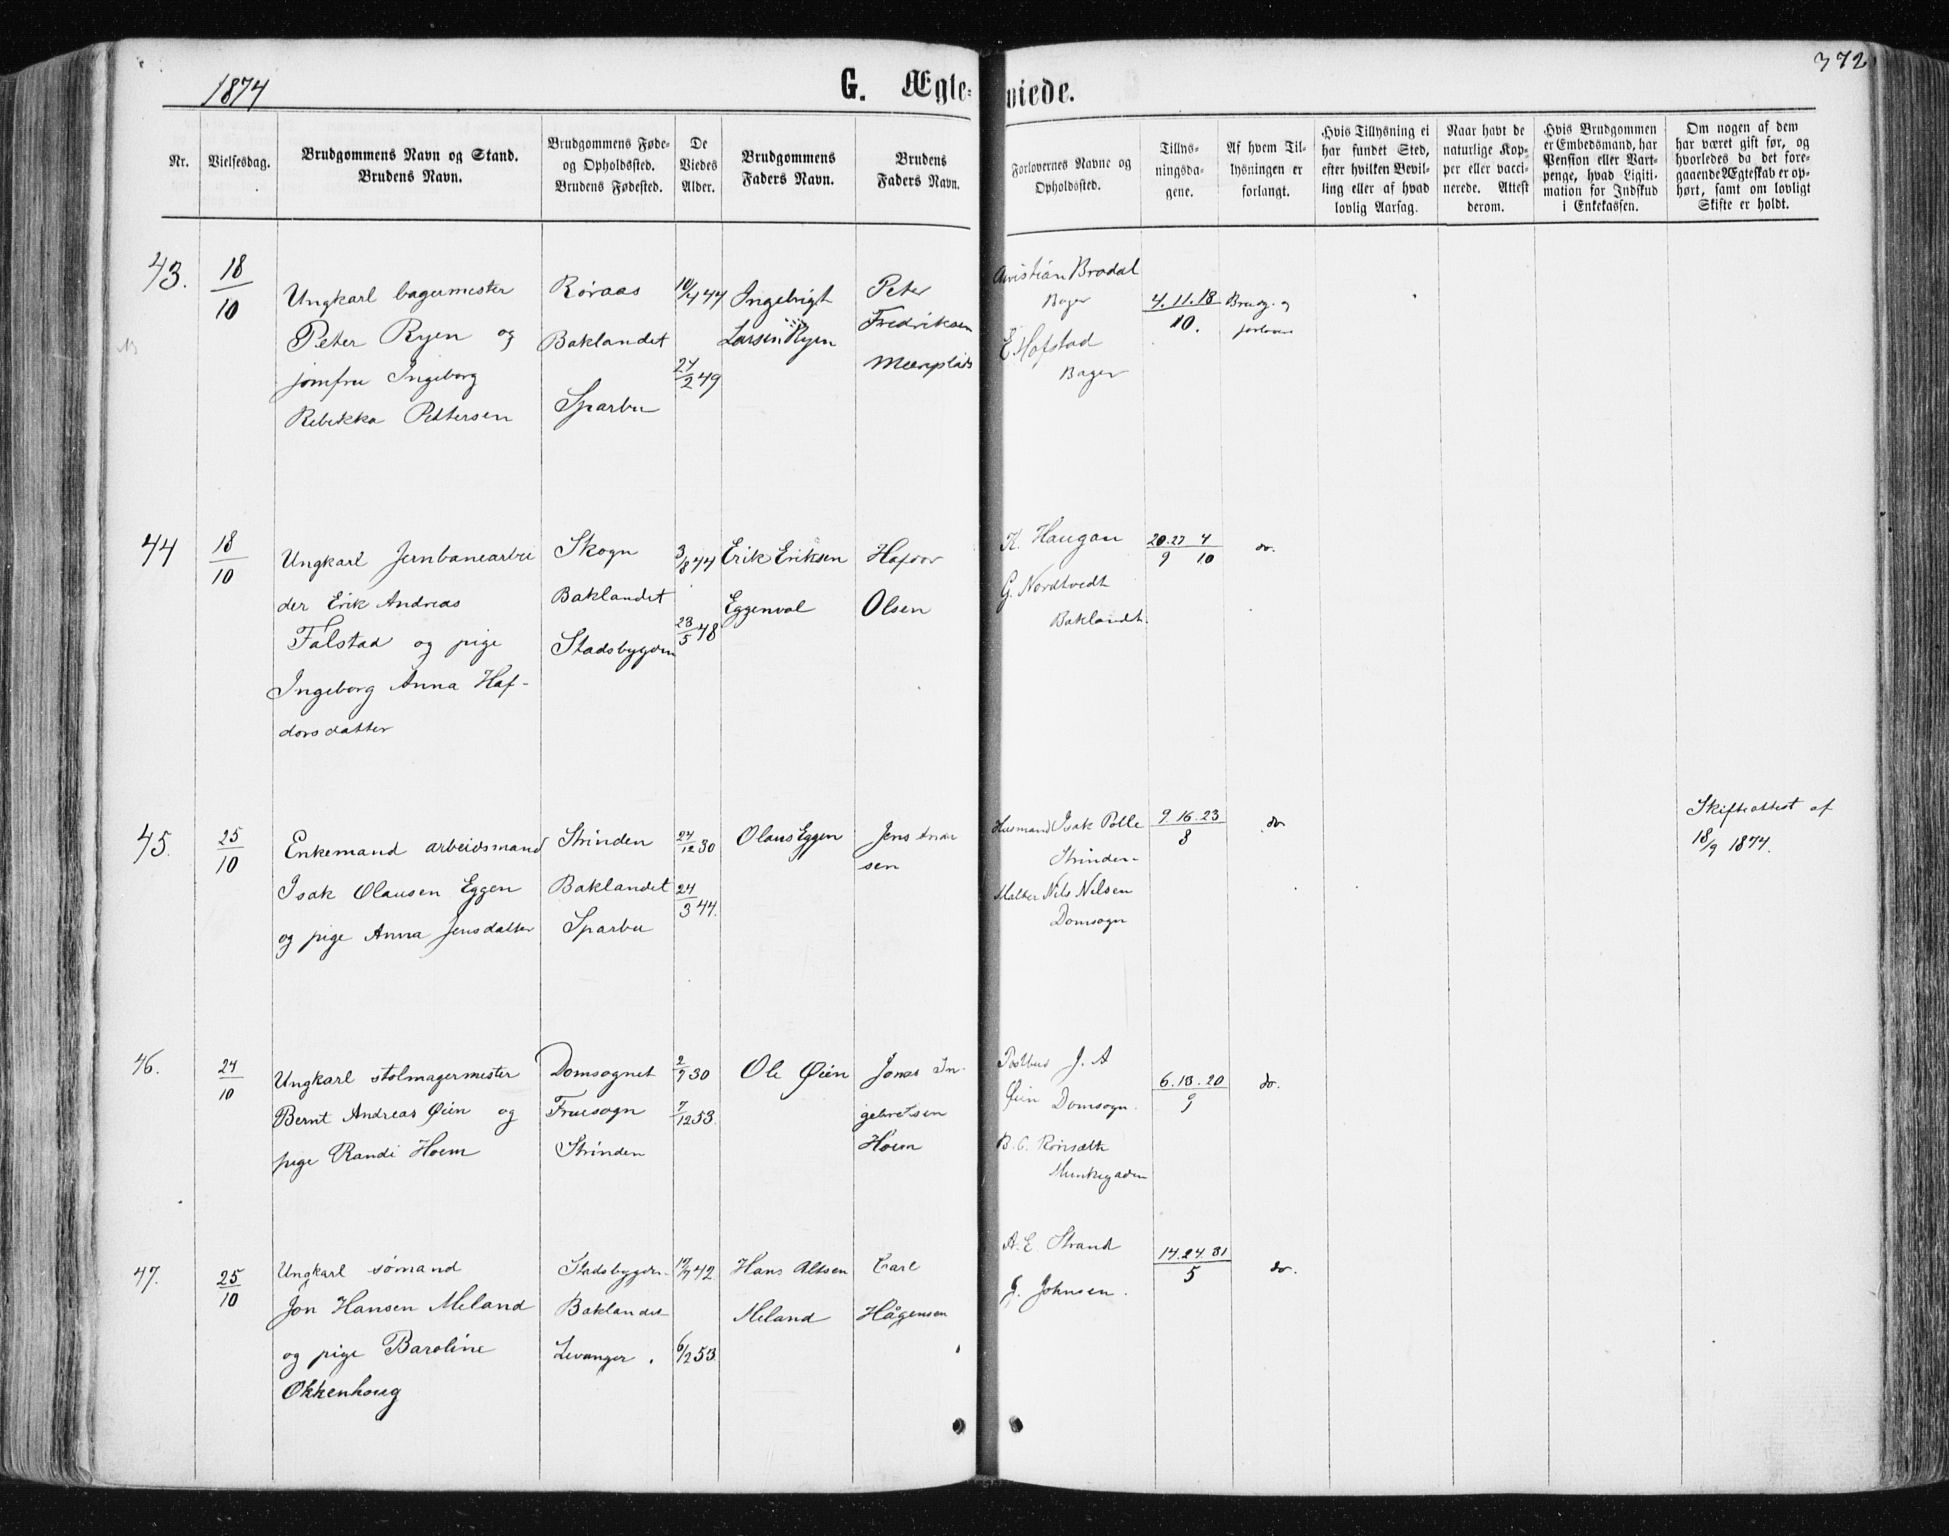 1874
G. Ægte-
viede.
372
Nr.
Vielsesdag.
Brudgommens Navn og Stand.
Brudens Navn.
Brudgommens Føde-
og Opholdssted.
Brudens Fødested.
De
Viedes
Alder.
Brudgommens
Faders Navn.
Brudens
Faders Navn.
Forlovernes Navne og
Opholdssted.
Tillys-
ningsda-
gene.
Af hvem Til-
lysningen er
forlangt.
Hvis Tillysning ei
har fundet Sted,
efter hvilken Bevil-
ling eller af hvad
lovlig Aarsag.
Naar havt de
naturlige Kop-
per eller vacci-
nerede. Attest
derom.
Hvis Brudgommen
er Embedsmand, har
Pension eller Vart-
penge, hvad Ligiti-
mation for Indskud
i Enkekassen.
Om nogen af dem
har været gift før, og
hvorledes da det fore-
gaaende Ægteskab er op-
hørt, samt om lovligt
Skifte er holdt.
43.
18/10
Ungkarl bagermester
Peter Ryen og
jomfru Ingeborg
Rebekka Pettersen
Røraas
Baklandet
Sparbu
10/4 44
27/2 49
Ingebrigt
Larsen Ryen
Peter
Fredriksen
Christian Brodal
Bager
E Hofstad
Bager
4. 11. 18
10.
Brudg. og
forlover
44
18/10
Ungkarl Jernbanearbei
der Erik Andreas
Falstad og pige
Ingeborg Anna Haf-
dorsdatter
Skogn
Baklandet
Stadsbygden
3/8 44
23/5 48
Erik Eriksen
Eggenval
Hafdor
Olsen
K. Haugan
G. Nordtvedt
Baklandt.
20. 27 4
9 10
do.
45.
25/10
Enkemand arbeidsmand
Isak Olausen Eggen
og pige Anna Jensdatter
Strinden
Baklandet
Sparbu
24/12 30
24/3 44.
Olaus Eggen
Jens Andr
sen
Husmand Isak Polle
Strinden
Nils Nilsen
Domsogn
9. 16. 23
8
do
Skifteattest af
18/9 1874.
46.
24/10
Ungkarl stolmagermester
Bernt Andreas Øien og
pige Randi Hoem
Domsognet
Fruesogn
Strinden
2/9 30
7/12 53.
Ole Øien
Jonas In-
gebretsen
Hoem
Postbud J. A
Øien Domsogn.
Munkegaden
6. 13. 20
9
do.
47.
25/10
Ungkarl sømand
Jon Hansen Meland
og pige Baroline
Okkenhoug
Stadsbygden
Baklandet
Levanger.
19/7 42
6/12 53.
Hans Altsen
Meland
Carl
Hågensen
A. E. Strand
J. Johnsen.
14. 24. 31
5
do.